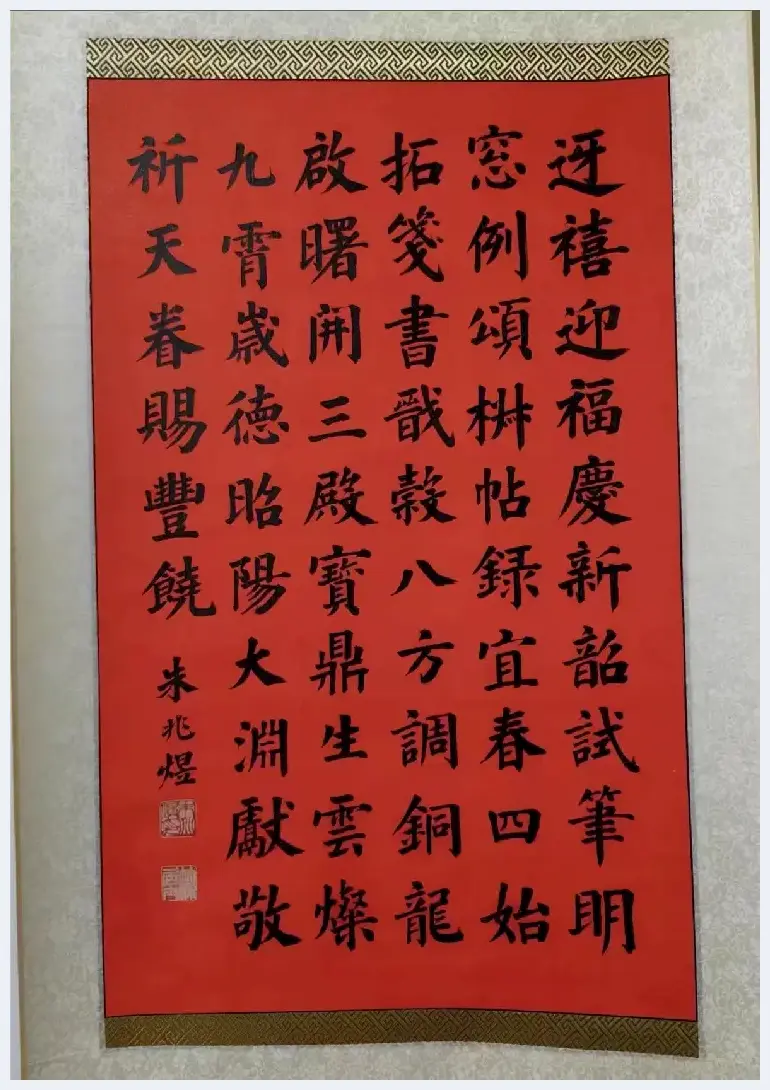 迓禧迎福慶新韶試筆明
窓例頌椒帖録宜春四始
拓箋書戩穀八方調銅龍
啟曙開三殿寶鼎生雲燦
九霄歳德昭陽大淵獻敬
祈天眷賜豐饒
朱兆煜